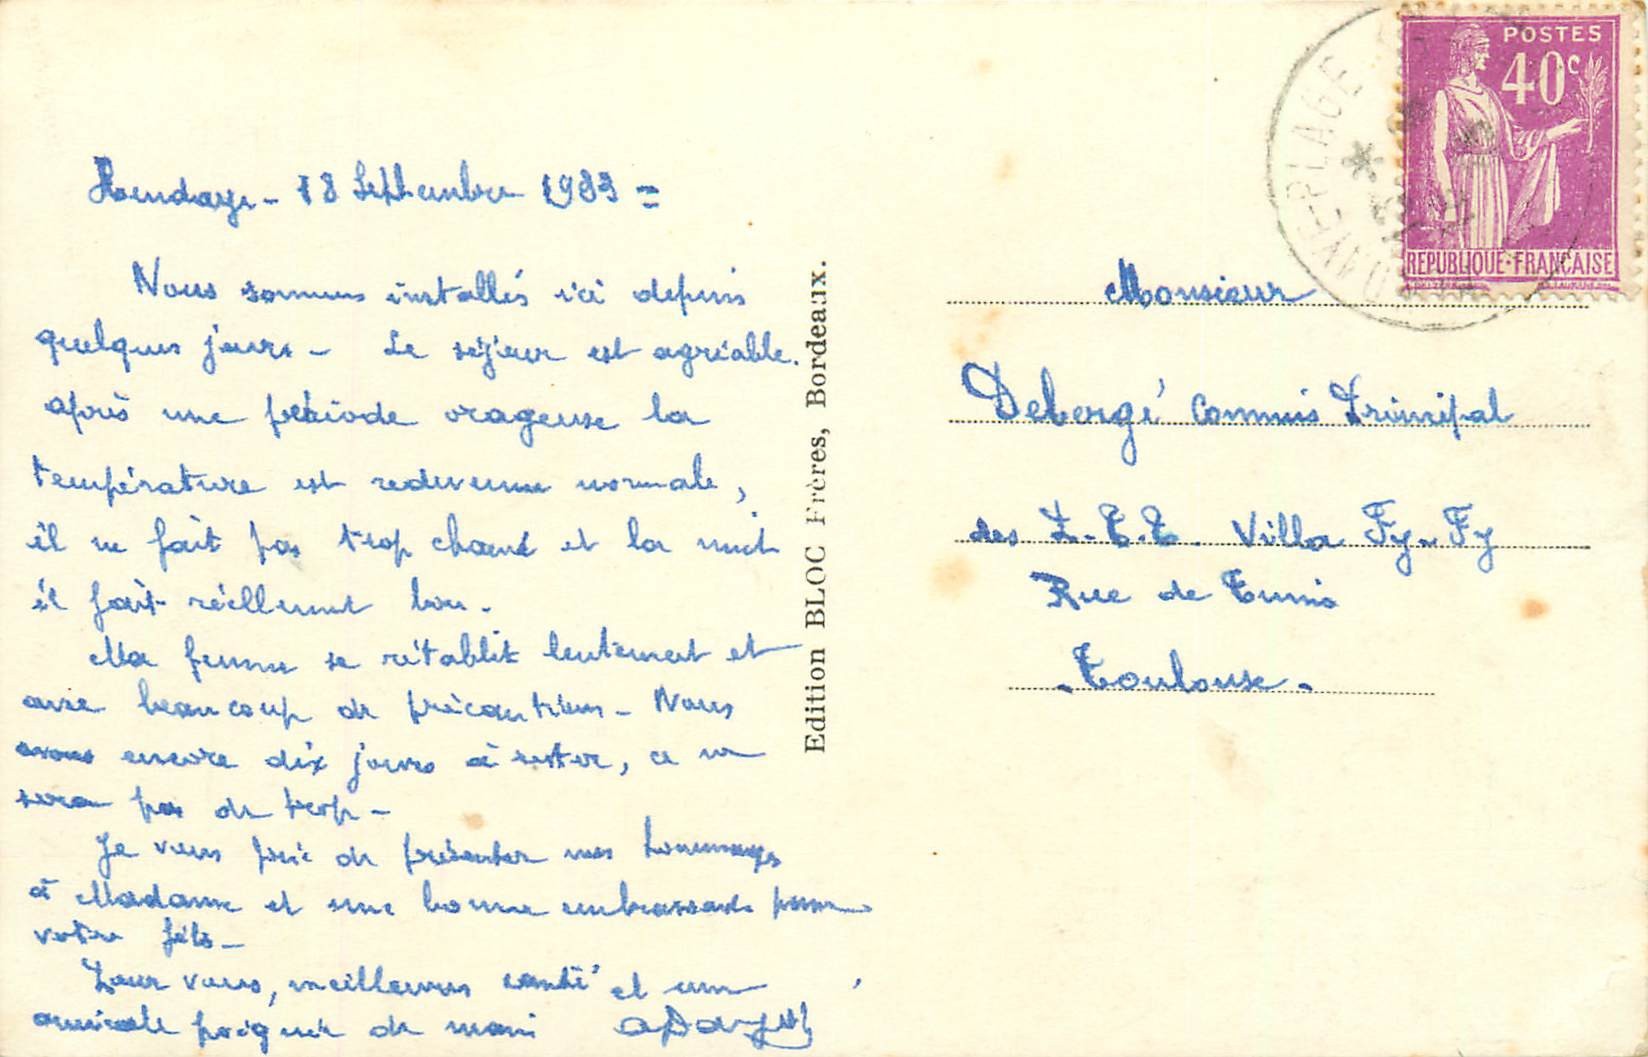 Hendaye - 18 Septembre 1933 =
Nous sommes installés ici depuis
quelques jours - Le séjour est agréable.
après une période orageuse la
température est redevenue normale,
il ne fait pas trop chaud et la nuit
il fait réellement bon.
Ma femme se rétablit lentement et
avec beaucoup de précautions - Nous
avons encore dix jours à rester, ce ne
sera pas de trop -
Je vous prie de présenter mes hommages
à Madame et une bonne embrassade pour
votre fils -
Pour vous, meilleure santé et une
amicale poignée de main
Edition BLOC Frères, Bordeaux.
POSTES
40c
REPUBLIQUE·FRANCAISE
HENDAYE-PLAGE
Monsieur
Debergé Commis Principal
des P.T.T. Villa Fy-Fy
Rue de Tunis
- Toulouse -